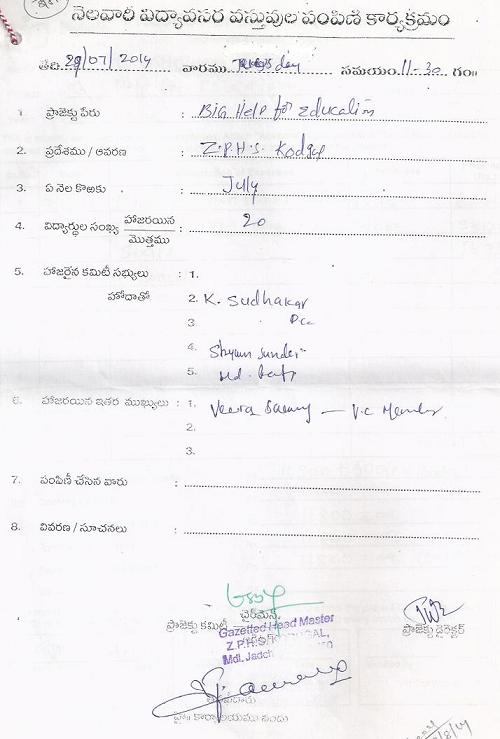 నెలవారి విద్యావసర వస్తువుల పంపిణి కార్యక్రమం
తేది 29/07/2014 వారము day సమయం 11-30 గం॥
1 ప్రాజెక్టు పేరు : Big Help for Education
2. ప్రదేశము / ఆవరణ : Z.P.H.S. Kodgal
3. ఏ నెల కొఱకు : July
4. విద్యార్థుల సంఖ్య హాజరయిన / మొత్తము : 20
5. హాజరైన కమిటీ సభ్యులు : 1.
హోదాతో 2. K. Sudhakar
3.
4. Shyam Sunder
5. Md.
6. హాజరయిన ఇతర ముఖ్యులు : 1. Veera Swamy — V.C Member
2.
3.
7. పంపిణీ చేసిన వారు :
8. వివరణ / సూచనలు :
చైర్‌మెన్,
ప్రాజెక్టు కమిటీ
ప్రాజెక్టు డైరెక్టర్
Gazetted Head Master
Z.P.H.S.
Mdl. Jadch
హై॥ కార్యాలయము నందు